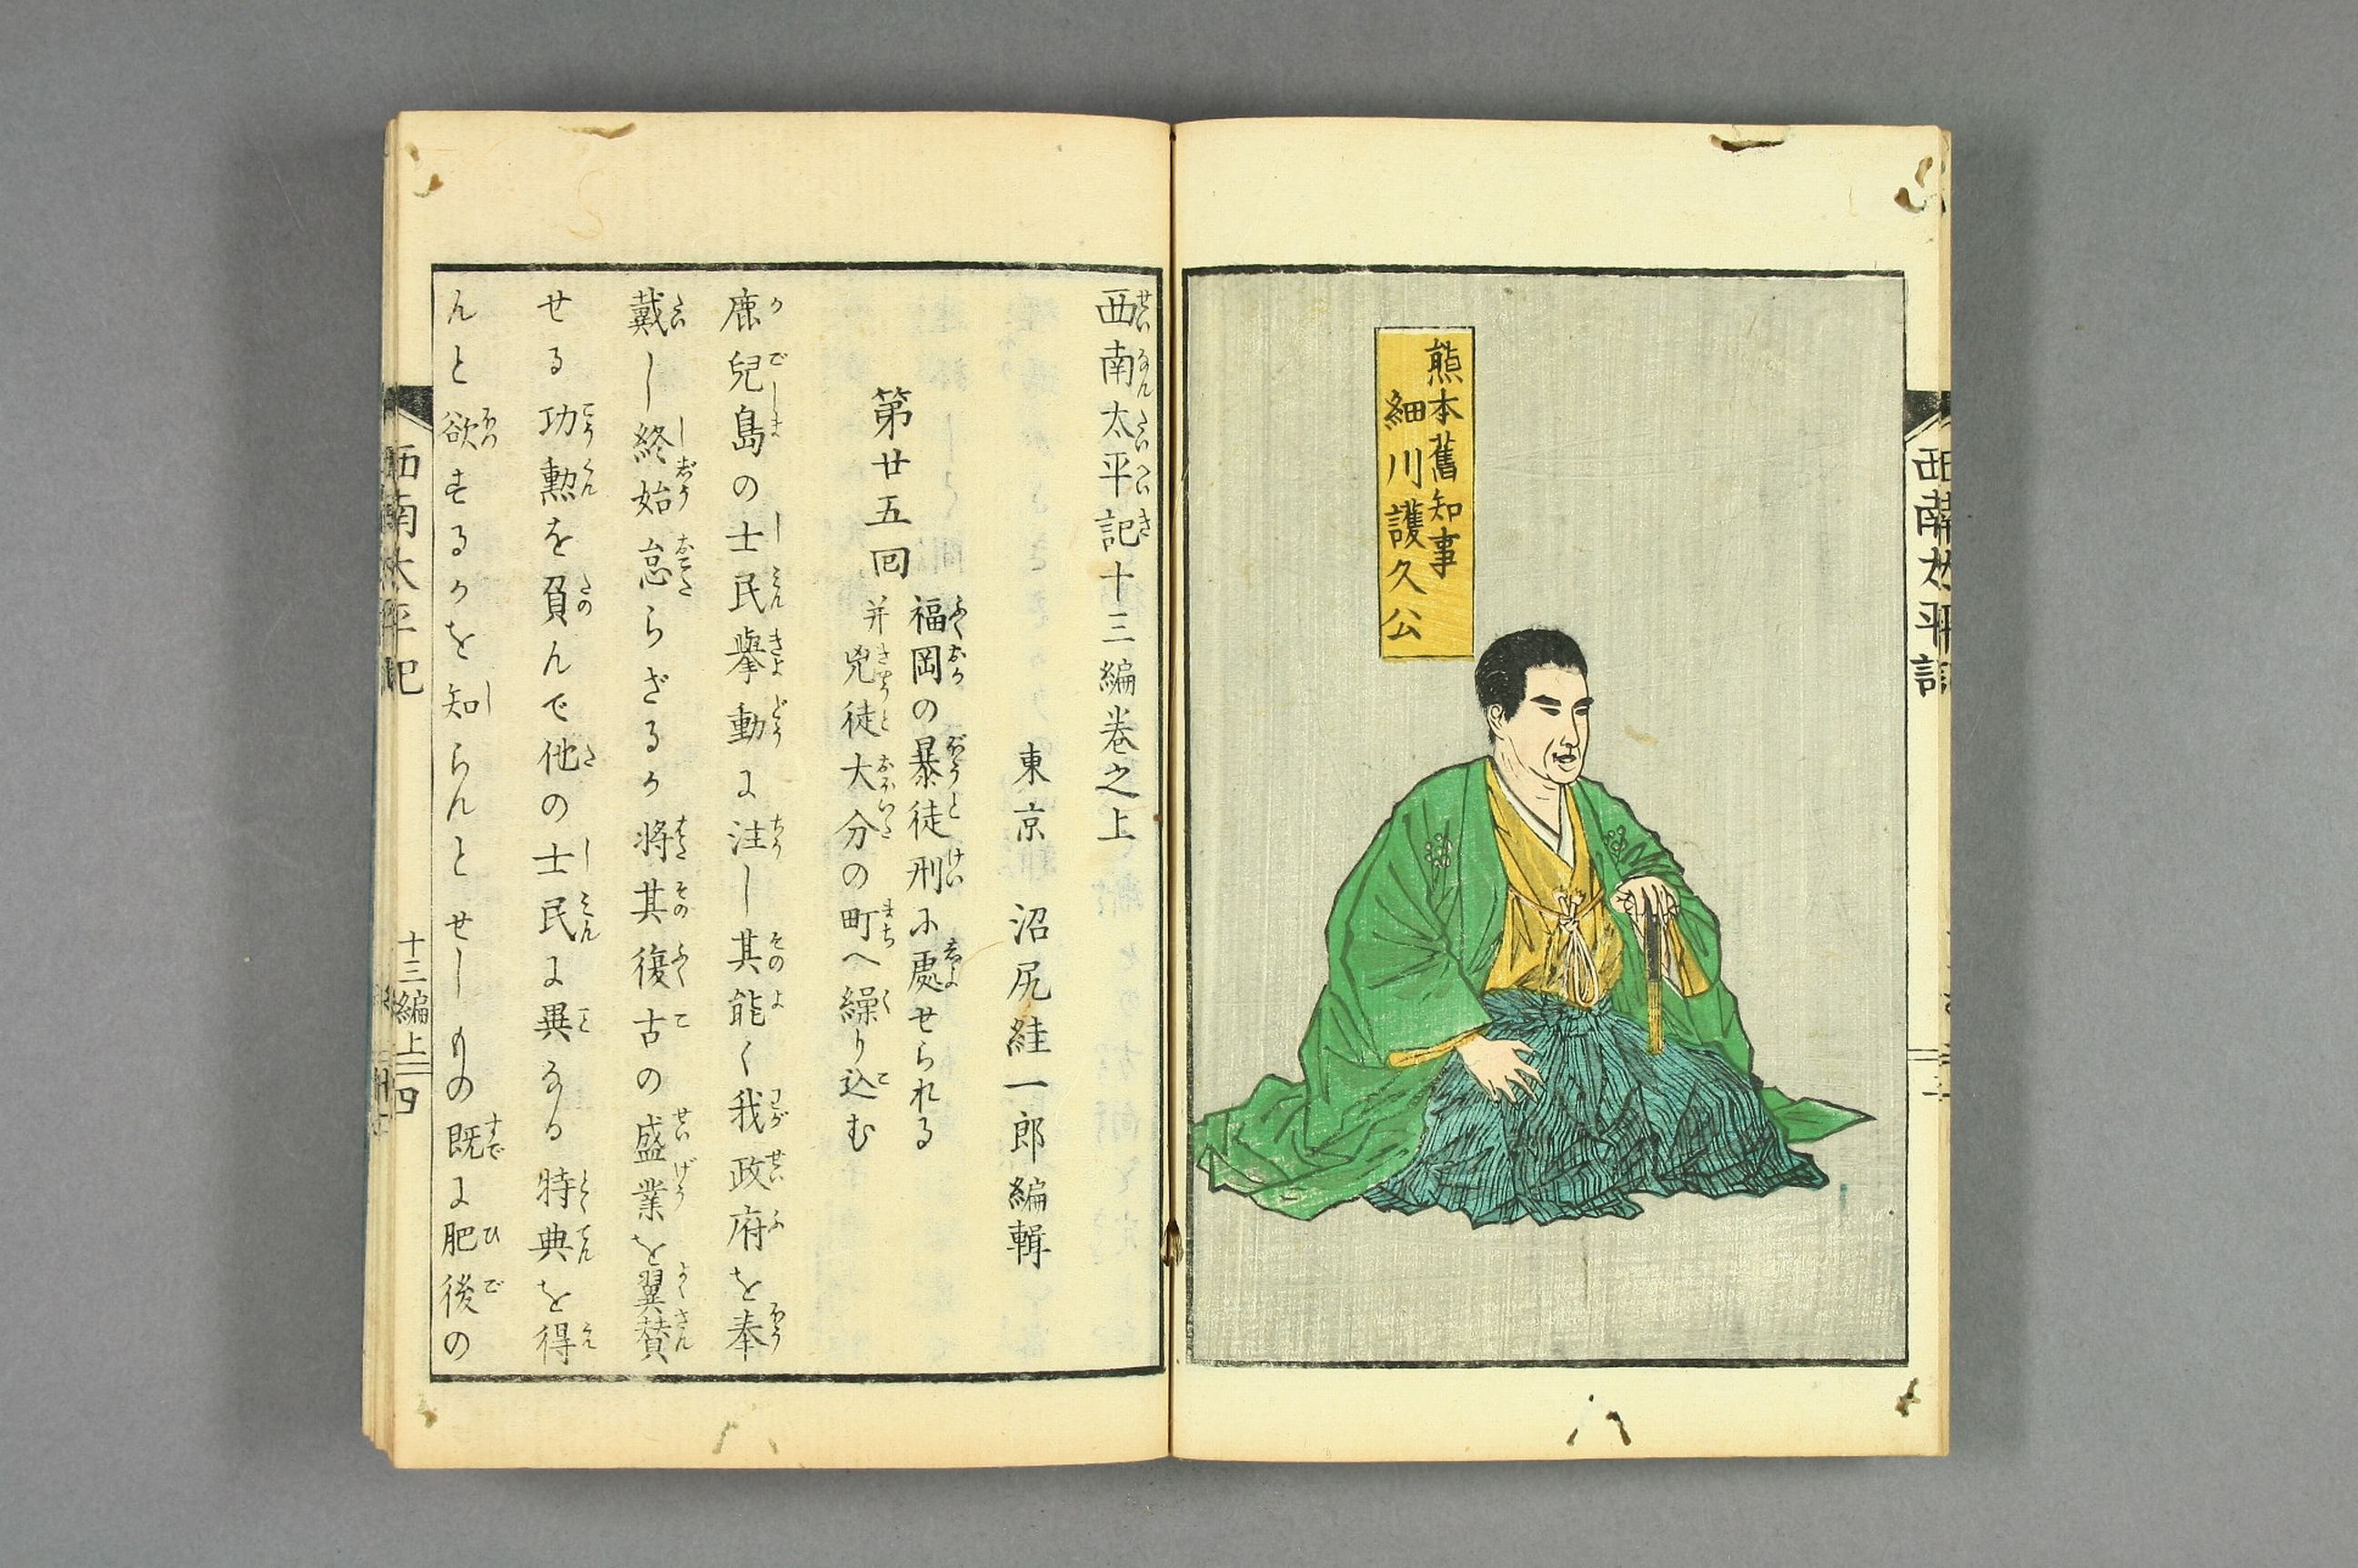 熊本舊知事
細川護久公
西南太平記十三編卷之上
東京　沼尻絓一郎編輯
第廿五回
福岡の暴徒刑に處せられる
并兇徒大分の町へ繰り込む
鹿兒島の士民擧動に注し其能く我政府を奉
戴し終始怠らざるか将其復古の盛業を翼賛
せる功勲を負んで他の士民に異なる特典を得
んと欲するかを知らんとせしもの既に肥後の
西南太平記
十三編上
四